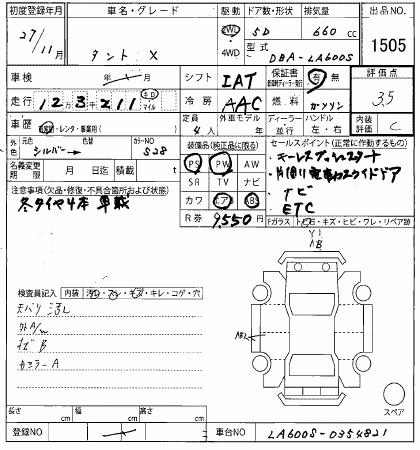 初度登録年月 車名・グレード 駆動 ドア数・形状 排気量 出品NO.
27/11月 タント X 2WD 5D 660 cc 1505
4WD 型式 DBA-LA600S
車検 年 月 シフト IAT 保証書 有 無 評価点
走行 12万3千211 キロ マイル 冷房 AAC 燃料 ガソリン 3.5
車歴 自家用・レンタ・事業用( ) 定員 4人 外車モデル 年 ディーラー 並行 ハンドル 左・右 内装評価 C
外色 元色 シルバー 色替 カラーNO S28 装備品(純正品に限る) セールスポイント(正常に作動するもの)
PS PW AW キーレスプッシュスタート
名義変更期限 月 日迄 積載 t SR TV ナビ 片側電動スライドドア
注意事項(欠品・修復・不具合箇所および状態) カワ エアB ABS ナビ
冬タイヤ4本 車載 R券 9,550円 ETC
Fガラス トビ石・キズ・ヒビ・ワレ・リペア跡
検査員記入 内装 汚れ・スレ・キズ・キレ・コゲ・穴
天バリ 汚し
外A/W
ナビB
カメラーA
スペア
長さ cm 幅 cm 高さ cm
登録NO 車台NO LA600S-0354821